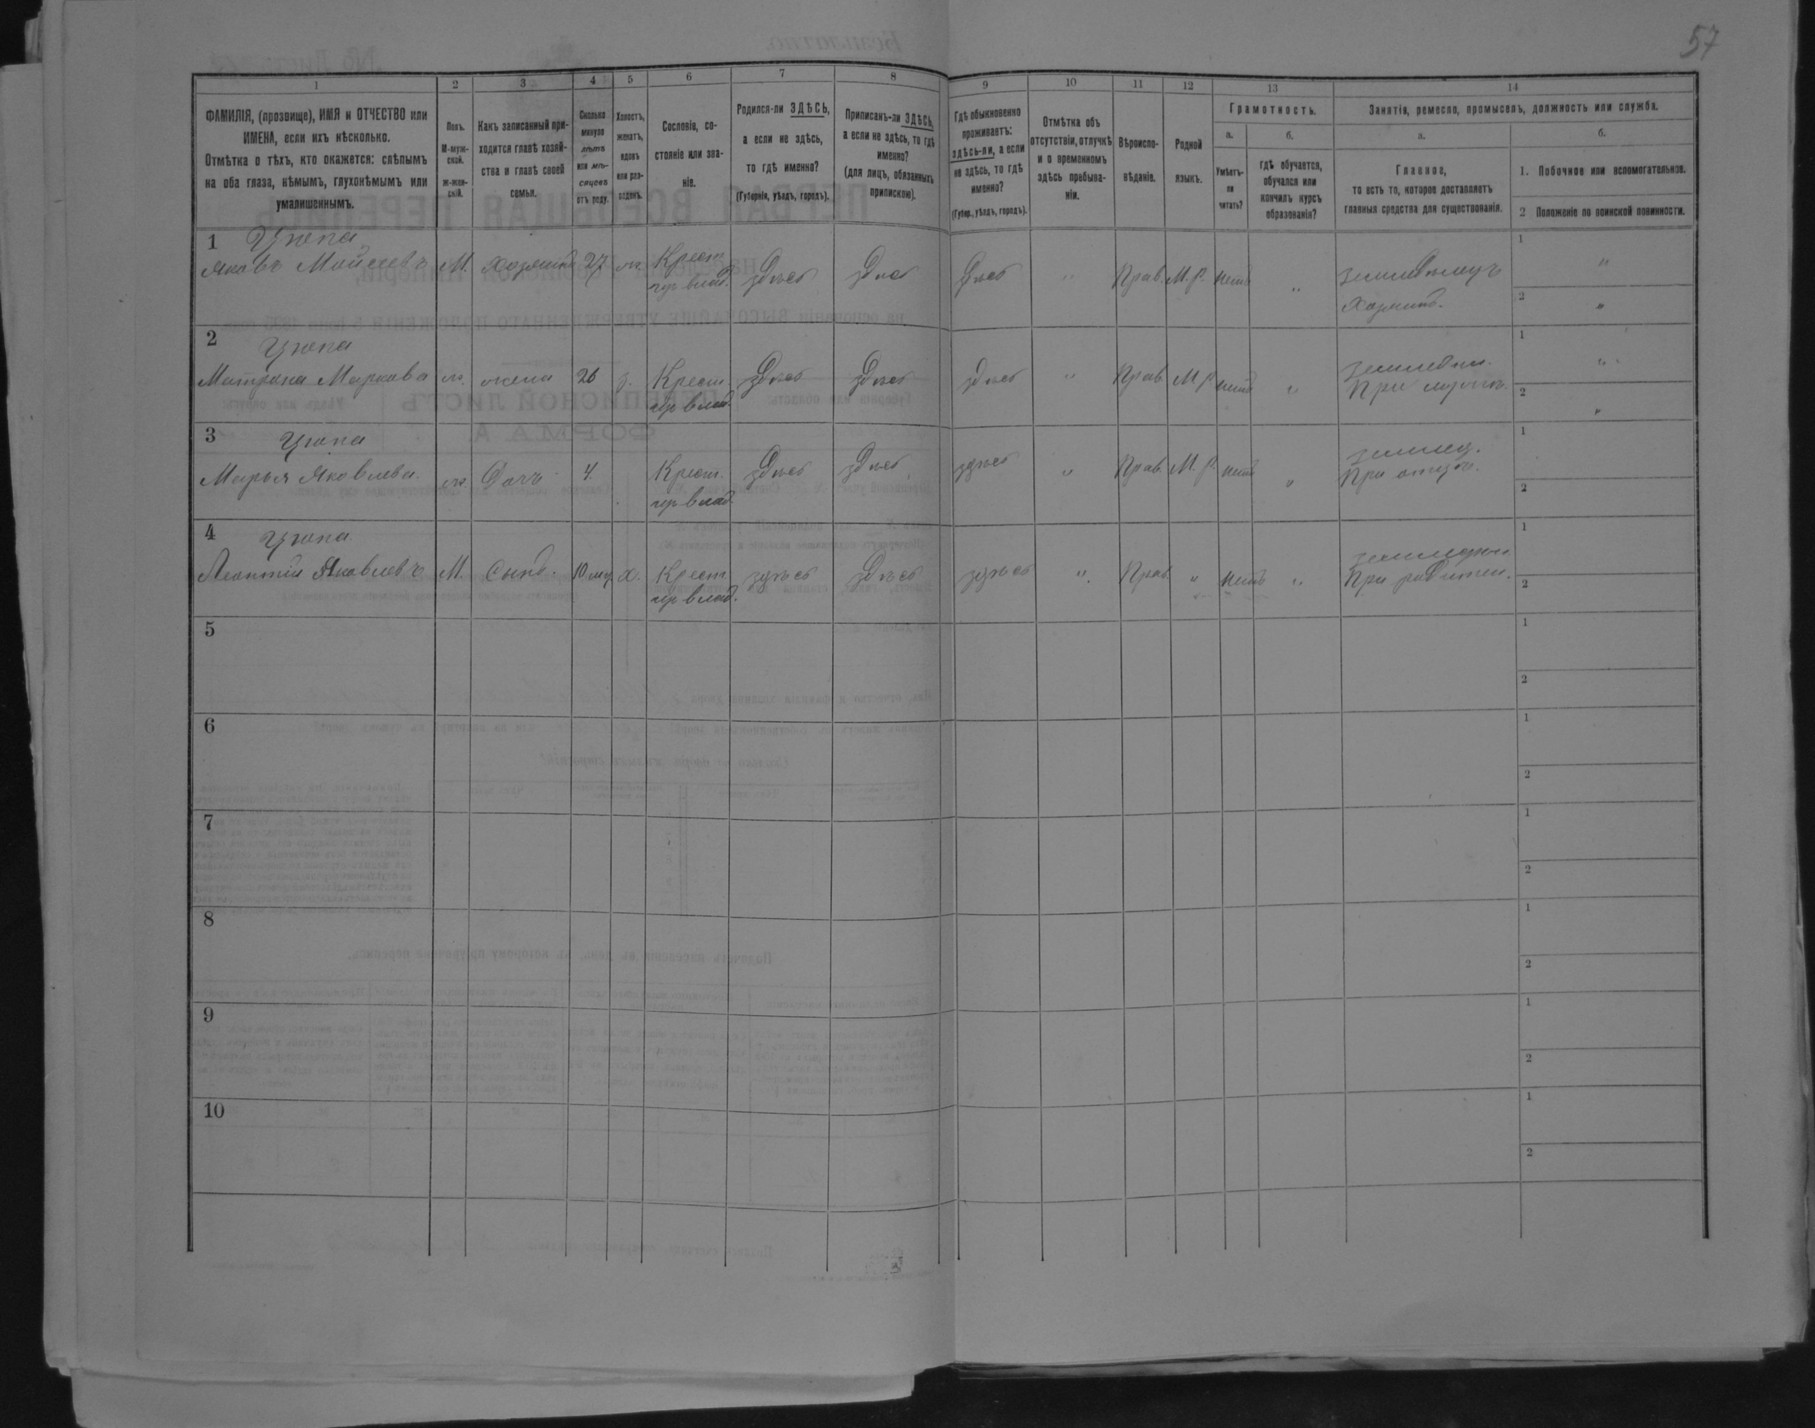 57
1 2 3 4 5 6 7 8 9 10 11 12 13 14
ФАМИЛІЯ, (прозвище), ИМЯ и ОТЧЕСТВО или
ИМЕНА, если ихъ нѣсколько.
Отмѣтка о тѣхъ, кто окажется: слѣпымъ
на оба глаза, нѣмымъ, глухонѣмымъ или
умалишеннымъ.
Полъ.
М-муж-
ской.
Ж-жен-
скій.
Какъ записанный при-
ходится главѣ хозяй-
ства и главѣ своей
семьи.
Сколько
минуло
лѣтъ
или мѣ-
сяцевъ
отъ роду.
Холостъ,
женатъ,
вдовъ
или раз-
веденъ.
Сословіе, со-
стояніе или зва-
ніе.
Родился-ли ЗДѢСЬ,
а если не здѣсь,
то гдѣ именно?
(Губернія, уѣздъ, городъ).
Приписанъ-ли ЗДѢСЬ,
а если не здѣсь, то гдѣ
именно?
(для лицъ, обязанныхъ
припискою).
Гдѣ обыкновенно
проживаетъ:
здѣсь-ли, а если
не здѣсь, то гдѣ
именно?
(Губер., уѣздъ, городъ).
Отмѣтка объ
отсутствіи, отлучкѣ
и о временномъ
здѣсь пребыва-
ніи.
Вѣроиспо-
вѣданіе.
Родной
языкъ.
Грамотность.
а.
Умѣетъ-
ли
читать?
б.
гдѣ обучается,
обучался или
кончилъ курсъ
образованія?
Занятія, ремесло, промыселъ, должность или служба.
а.
Главное,
то есть то, которое доставляетъ
главныя средства для существованія.
б.
1. Побочное или вспомогательное.
2 Положеніе по воинской повинности.
1 Цюпа
Яковъ Мойсеевъ М. Хозяинъ 27 ж Крест. здѣсь здѣсь здѣсь " Прав. М.р. нетъ "
Хозяинъ.
1 "
2 "
2 Цюпа
Матрона Маркова ж. жена 26 з. Крест. здѣсь здѣсь здѣсь " Прав. М.р. нетъ "
При мужѣ.
1 "
2 "
3 Цюпа
Марья Яковлева. ж Дочь 4. Крест. здѣсь здѣсь здѣсь " Прав. М.р. нетъ "
При отцѣ.
1
2
4 Цюпа
Леонтій Яковлевъ М. Сынъ. 10 мц. х. Крест. здѣсь здѣсь здѣсь " Прав. " нетъ "
При родител.
1
2
5
1
2
6
1
2
7
1
2
8
1
2
9
1
2
10
1
2